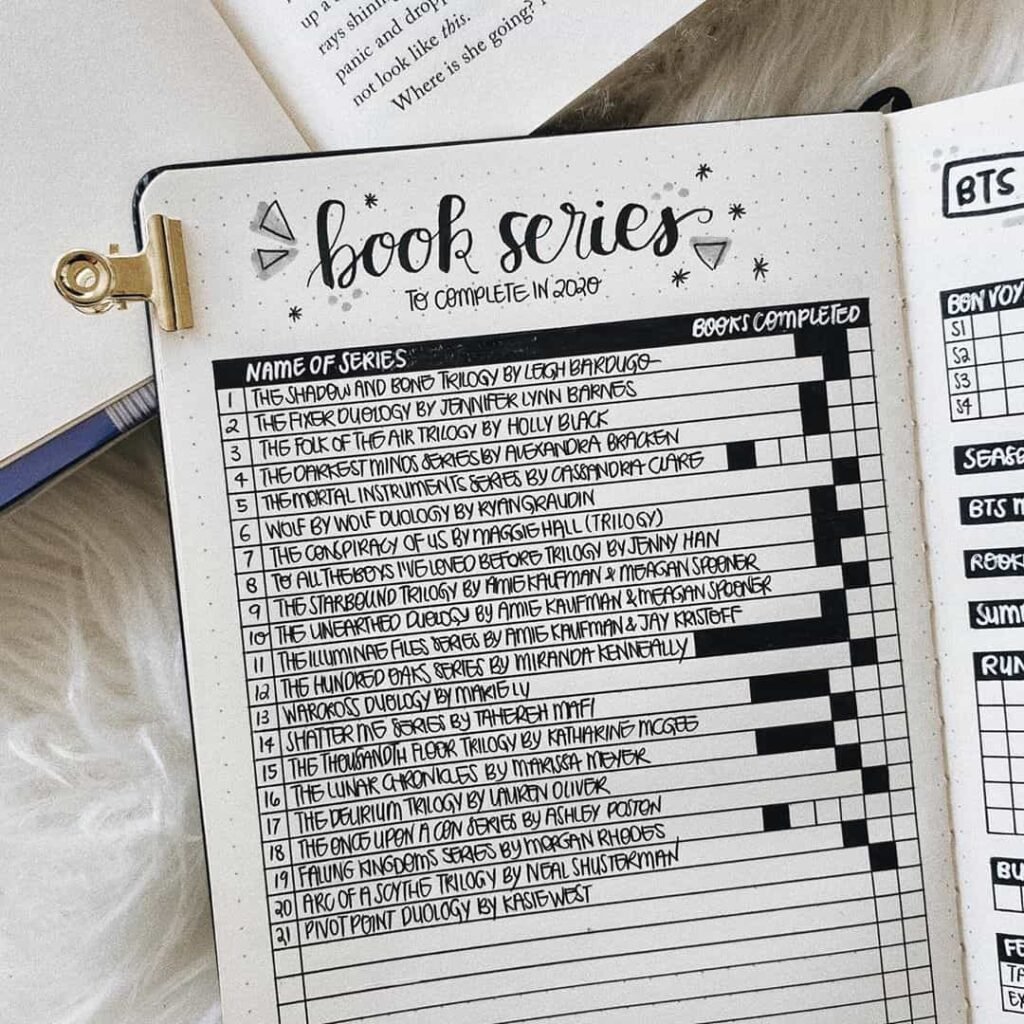 up a
rays shinin
panic and dropp
not look like this.
Where is she going?
book series
TO COMPLETE IN 2020
NAME OF SERIES BOOKS COMPLETED
1 THE SHADOW AND BONE TRILOGY BY LEIGH BARDUGO
2 THE FIXER DUOLOGY BY JENNIFER LYNN BARNES
3 THE FOLK OF THE AIR TRILOGY BY HOLLY BLACK
4 THE DARKEST MINDS SERIES BY ALEXANDRA BRACKEN
5 THE MORTAL INSTRUMENTS SERIES BY CASSANDRA CLARE
6 WOLF BY WOLF DUOLOGY BY RYAN GRAUDIN
7 THE CONSPIRACY OF US BY MAGGIE HALL (TRILOGY)
8 TO ALL THE BOYS I'VE LOVED BEFORE TRILOGY BY JENNY HAN
9 THE STARBOUND TRILOGY BY AMIE KAUFMAN & MEAGAN SPOONER
10 THE UNEARTHED DUOLOGY BY AMIE KAUFMAN & MEAGAN SPOONER
11 THE ILLUMINAE FILES SERIES BY AMIE KAUFMAN & JAY KRISTOFF
12 THE HUNDRED OAKS SERIES BY MIRANDA KENNEALLY
13 WARCROSS DUOLOGY BY MARIE LU
14 SHATTER ME SERIES BY TAHEREH MAFI
15 THE THOUSANDTH FLOOR TRILOGY BY KATHARINE MCGEE
16 THE LUNAR CHRONICLES BY MARISSA MEYER
17 THE DELIRIUM TRILOGY BY LAUREN OLIVER
18 THE ONCE UPON A CON SERIES BY ASHLEY POSTON
19 FALLING KINGDOMS SERIES BY MORGAN RHODES
20 ARC OF A SCYTHE TRILOGY BY NEAL SHUSTERMAN
21 PIVOT POINT DUOLOGY BY KASIE WEST
BTS
BON VOY
S1
S2
S3
S4
SEAS
BTS
ROOK
SUM
RUN
BU
FE
TA
EX